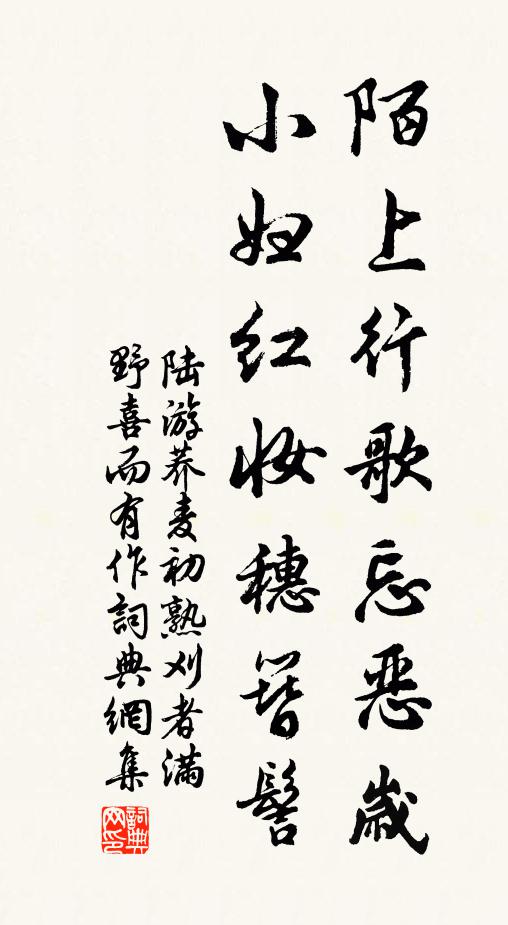 陌上行歌忘恶岁
小妇红妆穗簪髻
陆游荞麦初熟刈者满
野喜而有作詞典網集
詞典
网印